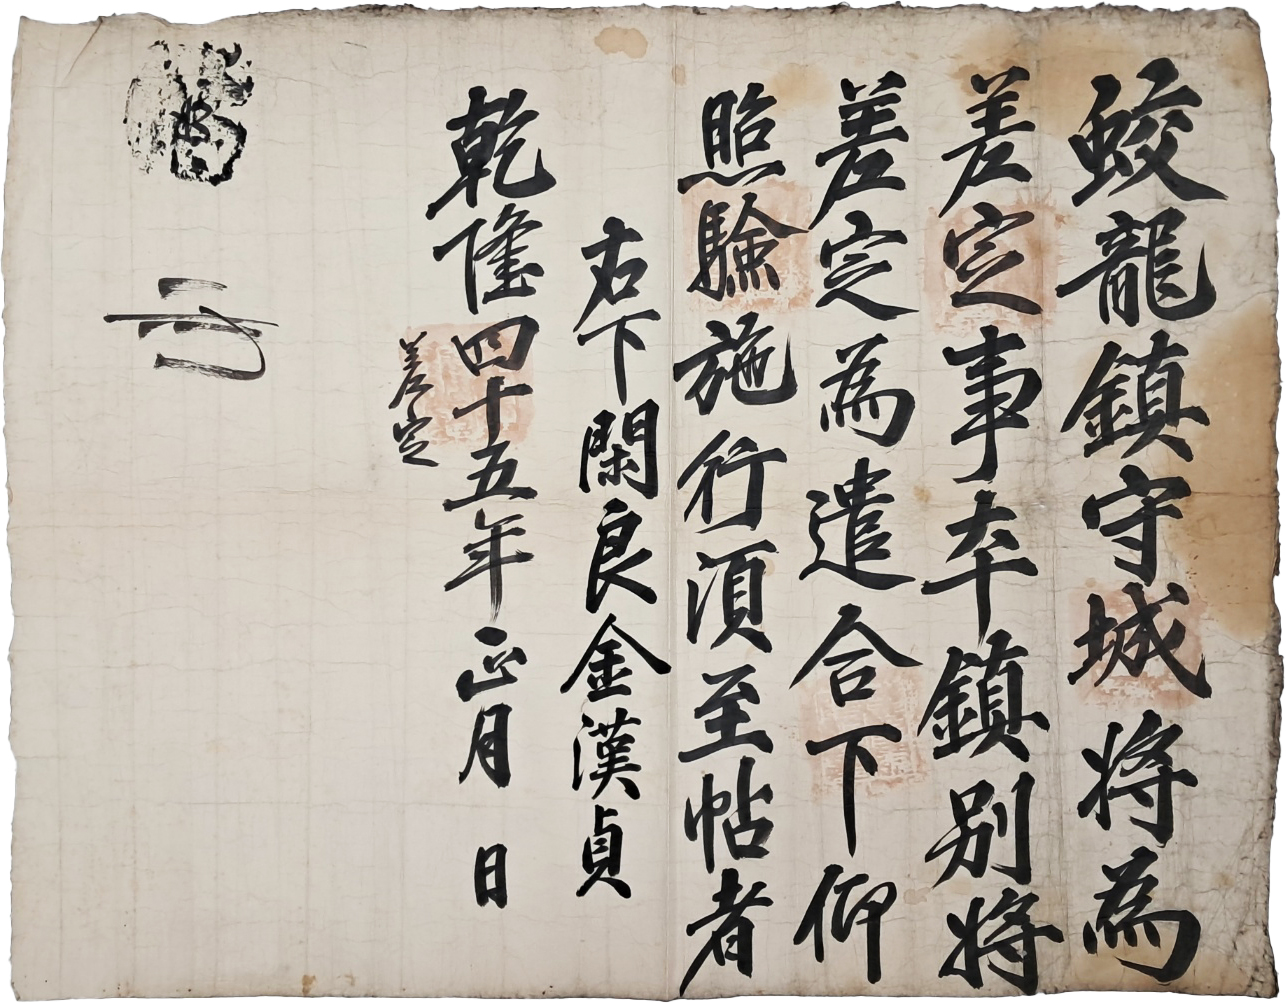 蛟龍鎮守城將為
差定事夲鎮別將
差定為遣合下仰
照驗施行湏至帖者
右下閑良金漢貞
乾隆四十五年正月 日
差定